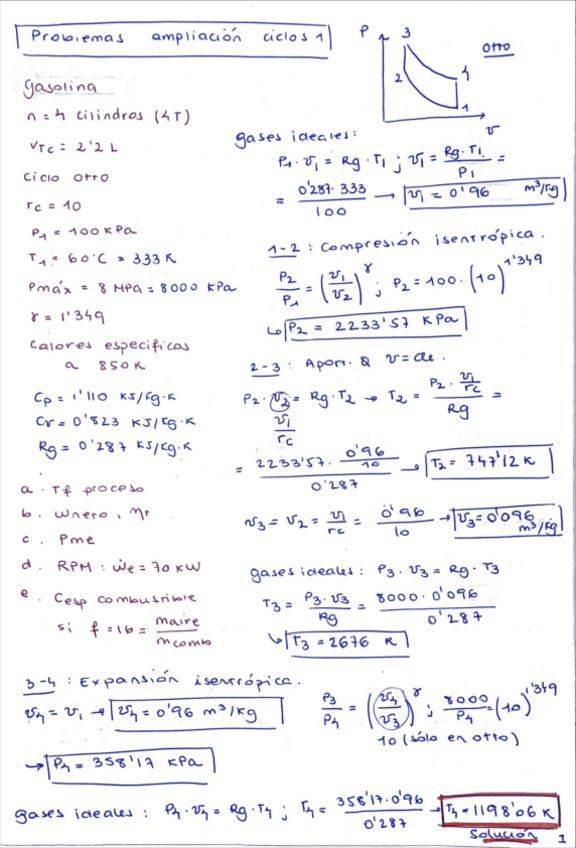 Problemas ampliación ciclos 1
P
3
2
4
1
v
Otto
Gasolina
n = 4 cilindros (4T)
VTC = 2'2 L
Ciclo Otto
rc = 10
P1 = 100 KPa
T1 = 60°C = 333 K
Pmáx = 8 MPa = 8000 KPa
γ = 1'349
Calores especificas
a 850 K
Cp = 1'110 KJ/Kg·K
Cv = 0'823 KJ/Kg·K
Rg = 0'287 KJ/Kg·K
a. Tf proceso
b. Wneto, ηt
c. Pme
d. RPM: Ẇe = 70 KW
e. Cesp combustible
si f = 16 = maire / mcomb
gases ideales:
P1 · v1 = Rg · T1 ; v1 = Rg · T1 / P1 =
= 0'287 · 333 / 100 → v1 = 0'96 m³/Kg
1-2 : Compresión isentrópica.
P2 / P1 = (v1 / v2)^γ ; P2 = 100 · (10)^1'349
↳ P2 = 2233'57 KPa
2-3 : Aport. Q v = cte.
P2 · v2 = Rg · T2 → T2 = P2 · v1/rc / Rg =
v1 / rc
= 2233'57 · 0'96/10 / 0'287 → T2 = 747'12 K
v3 = v2 = v1 / rc = 0'96 / 10 → v3 = 0'096 m³/Kg
gases ideales: P3 · v3 = Rg · T3
T3 = P3 · v3 / Rg = 8000 · 0'096 / 0'287
↳ T3 = 2676 K
3-4 : Expansión isentrópica.
v4 = v1 → v4 = 0'96 m³/Kg
P3 / P4 = (v4 / v3)^γ ; 8000 / P4 = (10)^1'349
10 (sólo en otto)
→ P4 = 358'17 KPa
gases ideales : P4 · v4 = Rg · T4 ; T4 = 358'17 · 0'96 / 0'287 → T4 = 1198'06 K
Solución
1